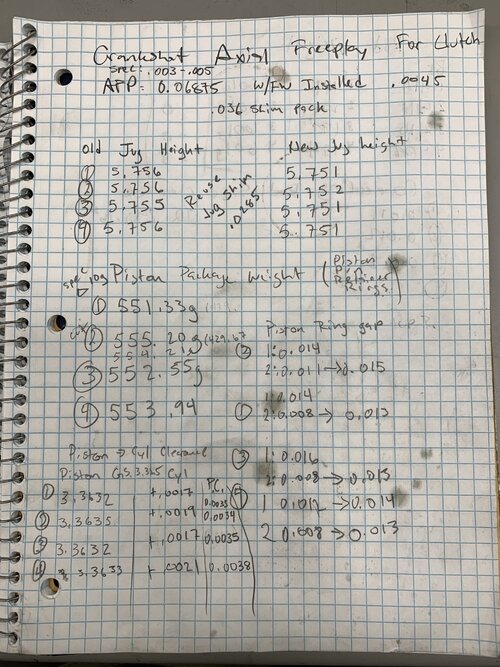 Crankshaft Axial Freeplay For Clutch
Spec: .003-.005
APP: 0.06875 W/FW Installed .0045
.036 Shim Pack
Old Jug Height
New Jug height
① 5.756
② 5.756
③ 5.755
④ 5.756
Reuse
Jug Shim
.0285
5.751
5.752
5.751
5.751
Piston Package Weight
(Piston
Pin
Retainer
Rings)
① 551.33g
② 555.20g
554.21g
③ 552.55g
④ 553.94
Piston Ring gap
② 1: 0.014
2: 0.011 → 0.015
① 1: 0.014
2: 0.008 → 0.013
③ 1: 0.016
2: 0.008 → 0.013
④ 1 0.012 → 0.014
2 0.008 → 0.013
Piston → Cyl Clearance
Piston Cyl
① 3.3632 +.0017
② 3.3635 +.0019 0.0034
③ 3.3632 +.0017 0.0035
④ 3.3633 +.0021 0.0038